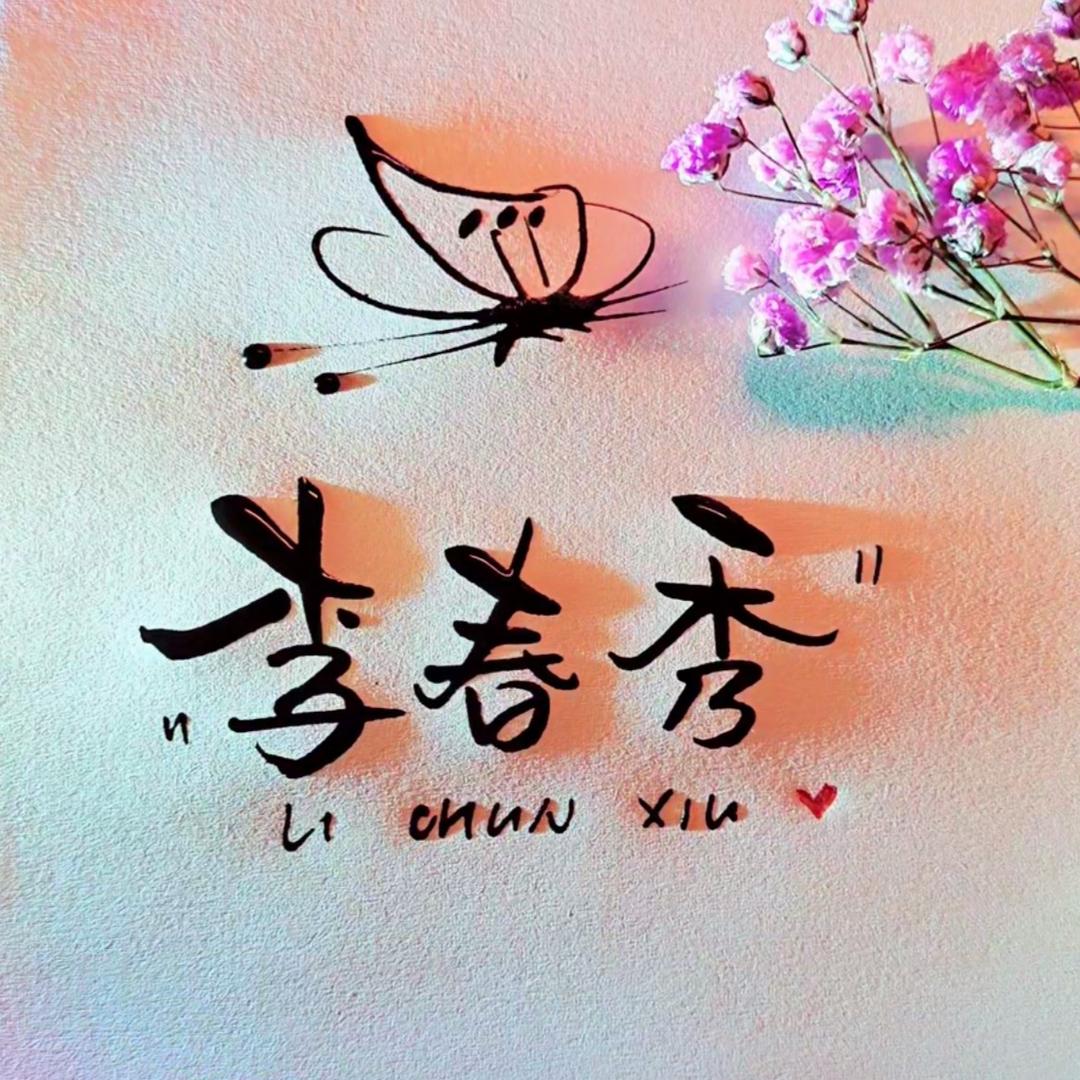 "李春秀"
LI CHUN XIU